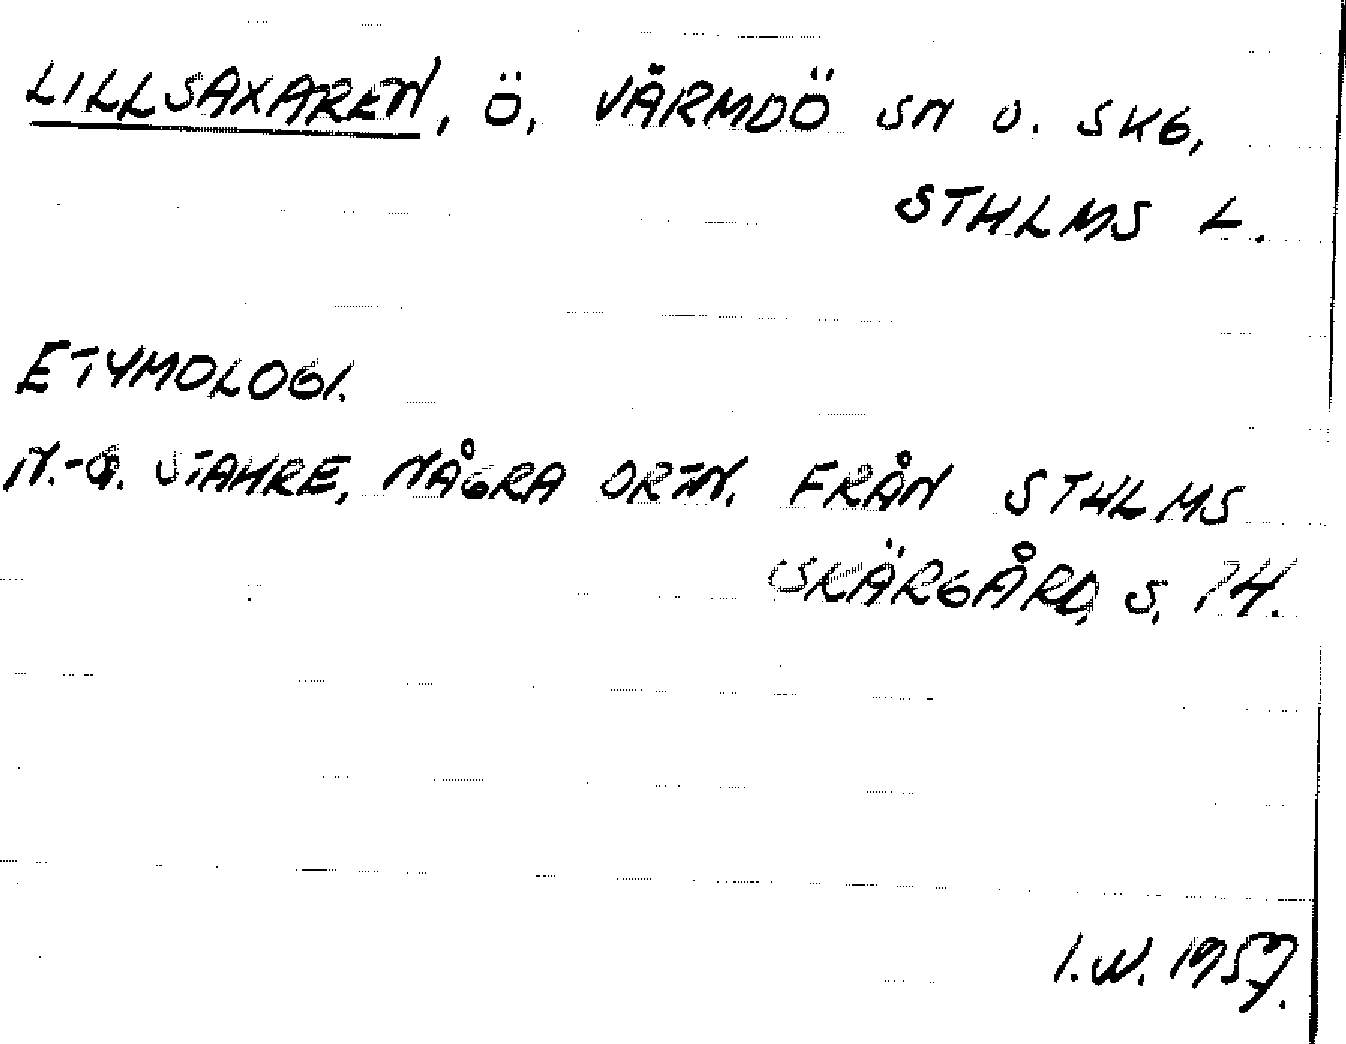 LILLSAXAREN, Ö, VÄRMDÖ SN O. SKG,
STHLMS L.
ETYMOLOGI.
N.-G. STAHRE, NÅGRA ORTN. FRÅN STHLMS
SKÄRGÅRD, S. 14.
I.W. 1957.